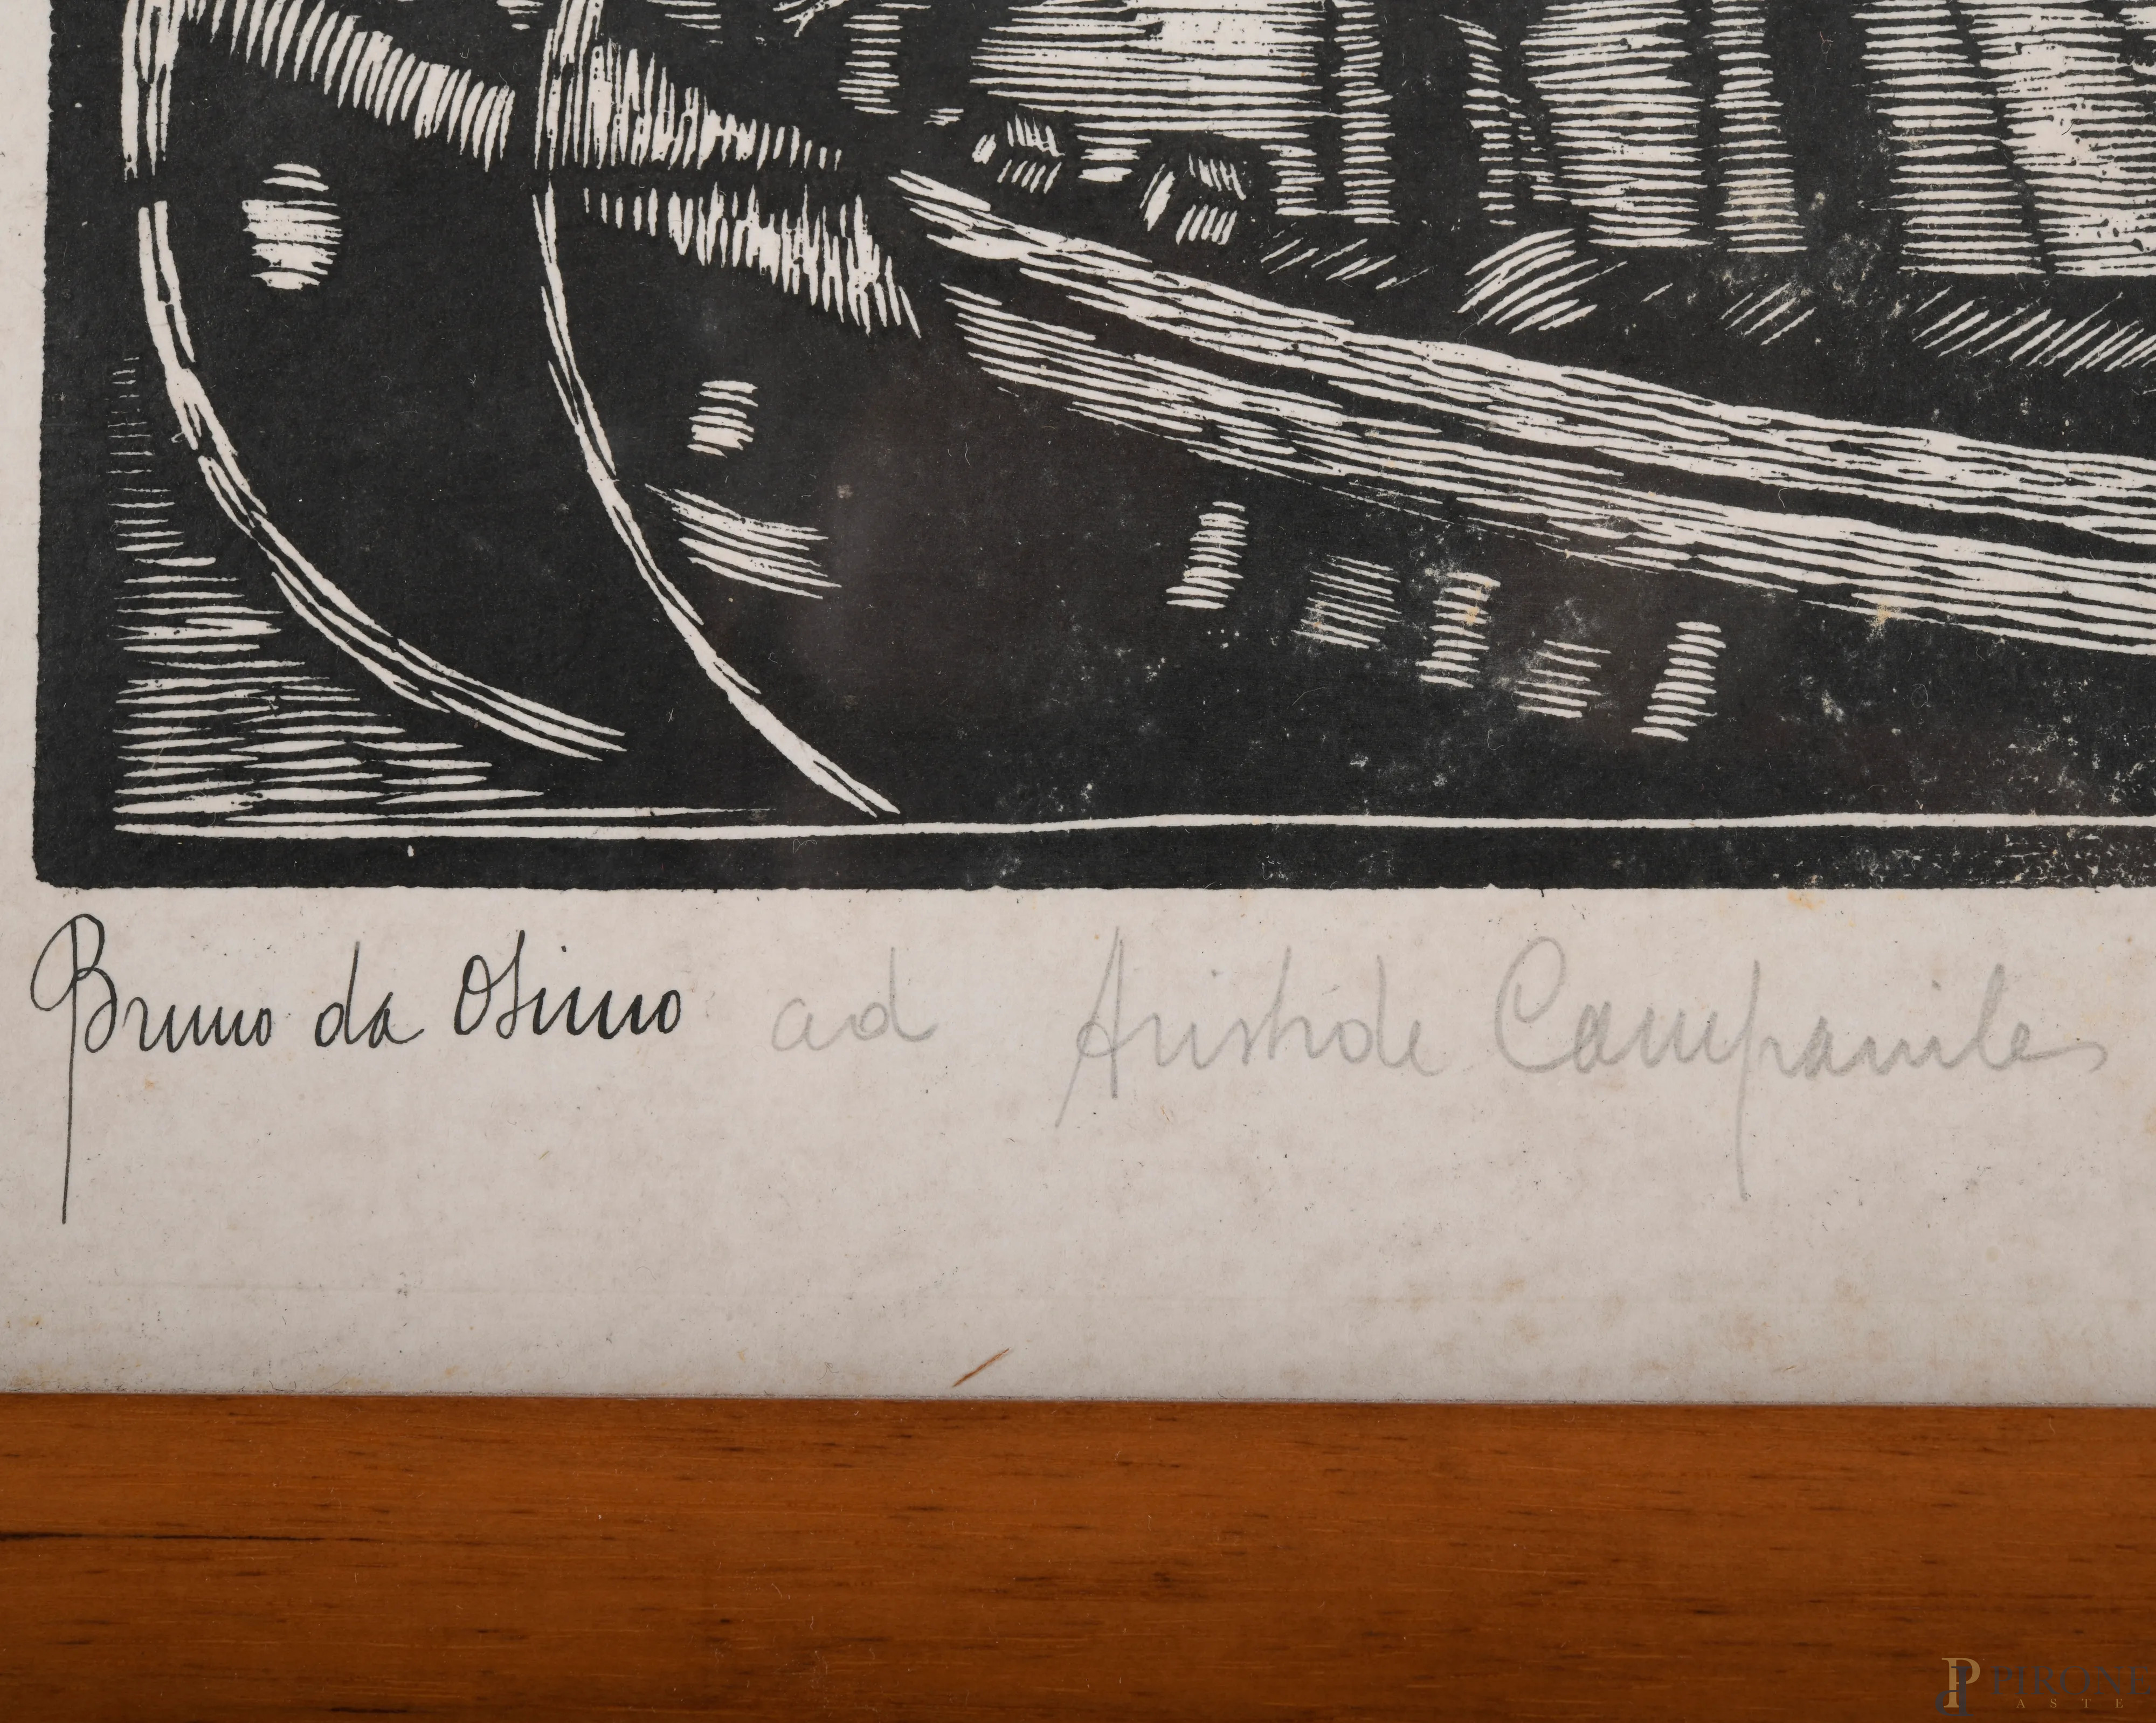 Bruno da Osimo ad Aristide Campanile
PIRONE
ASTE